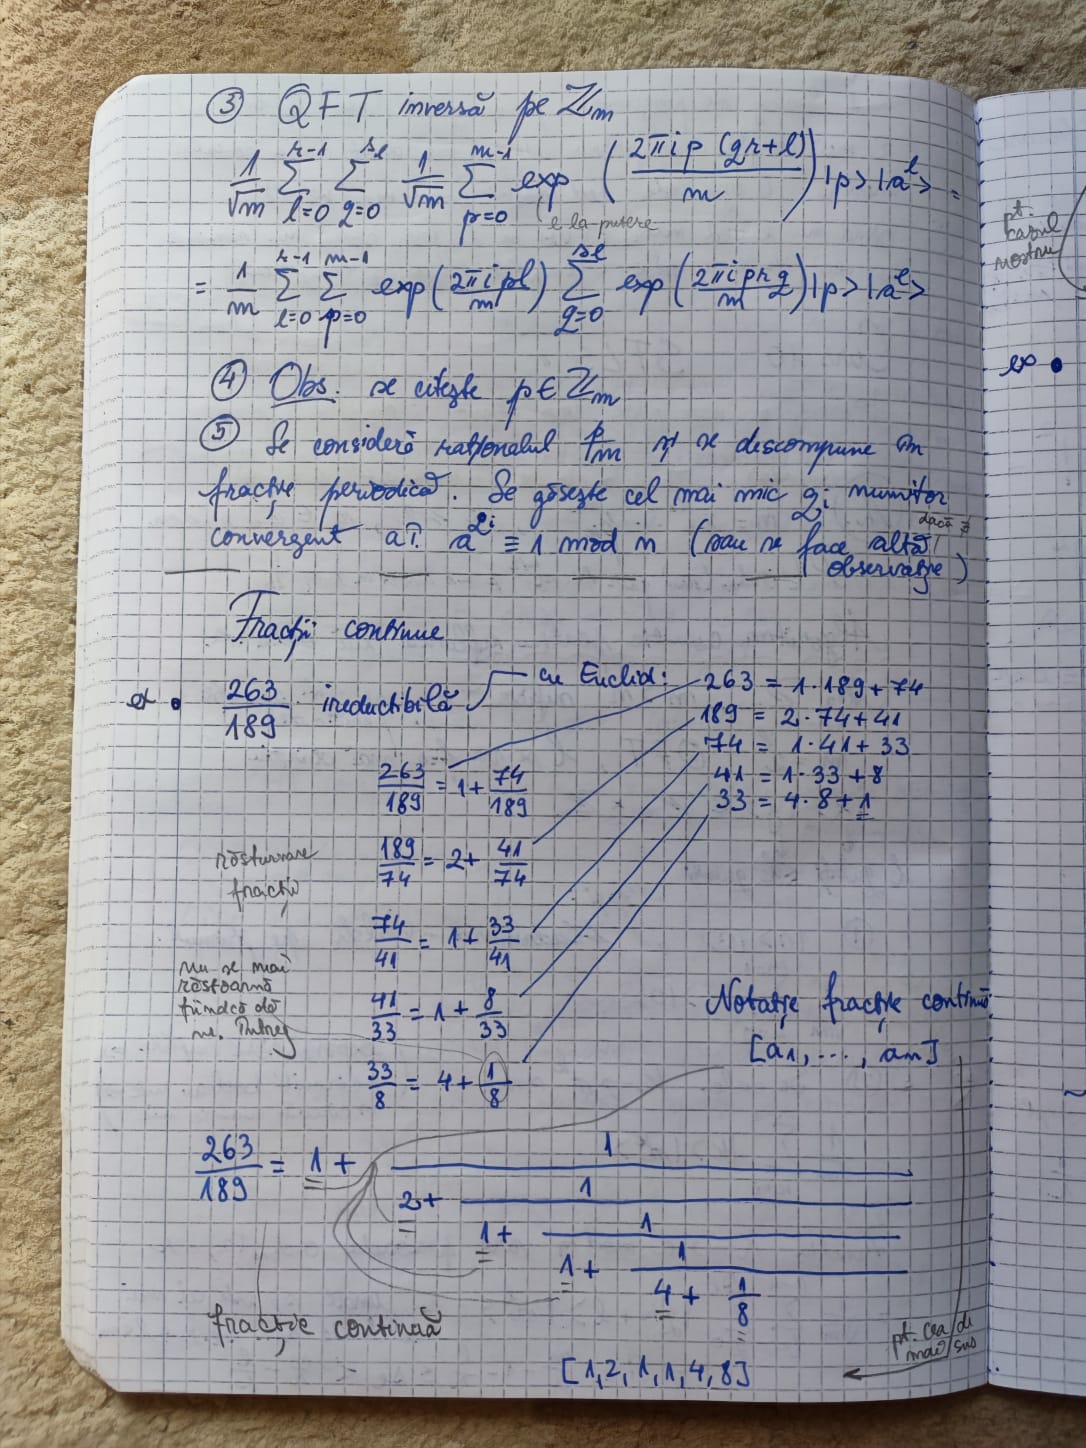 ③ QFT inversă pe ℤm
1/√m ∑_{l=0}^{r-1} ∑_{q=0}^{sl} 1/√m ∑_{p=0}^{m-1} exp (2πip (qr+l)/m) |p> |a^l> =
e la putere
= 1/m ∑_{l=0}^{r-1} ∑_{p=0}^{m-1} exp(2πipl/m) ∑_{q=0}^{sl} exp(2πiprq/m) |p> |a^l>
④ Obs. se citește p∈ℤm
⑤ Se consideră raționalul p/m și se descompune în
fracție periodică. Se găsește cel mai mic qi numitor
convergent aî. a^{qi} ≡ 1 mod n (sau se face altă
dacă ∄
observație)
pt.
cazul
nostru
ex •
Fracții continue
ex • 263/189 ireductibilă
cu Euclid: 263 = 1·189+74
189 = 2·74+41
74 = 1·41+33
41 = 1·33+8
33 = 4·8+1
263/189 = 1+ 74/189
răsturnare
fracții
189/74 = 2+ 41/74
74/41 = 1+ 33/41
nu se mai
răstoarnă
fiindcă dă
nr. întreg
41/33 = 1+ 8/33
33/8 = 4+ 1/8
Notație fracție continuă
[a1, ..., an]
263/189 = 1 + 1
2+ 1
1+ 1
1+ 1
4 + 1/8
fracție continuă
pt. cea de
mai sus
[1,2,1,1,4,8]